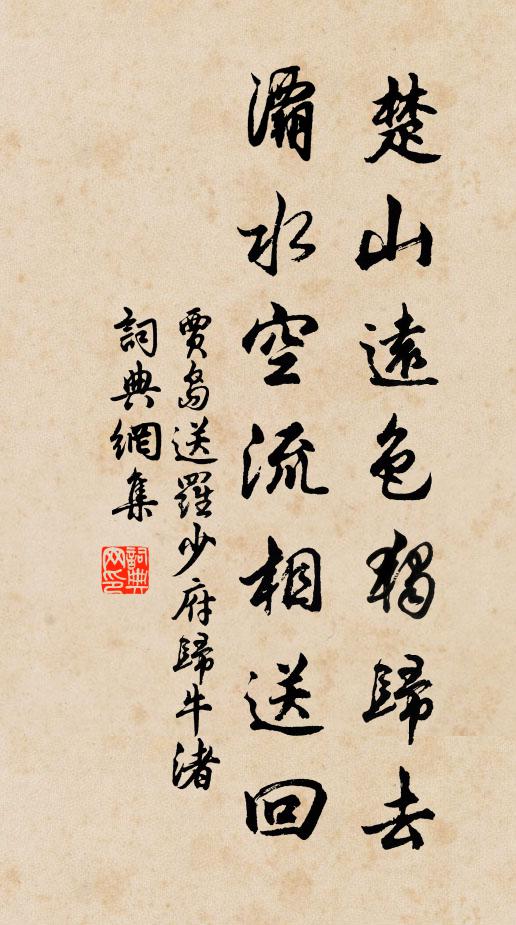 楚山遠色獨歸去
灞水空流相送回
賈島送羅少府歸牛渚
詞典網集
詞典网印